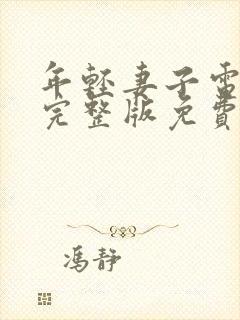 年輕妻子電
完整版免費
馮靜